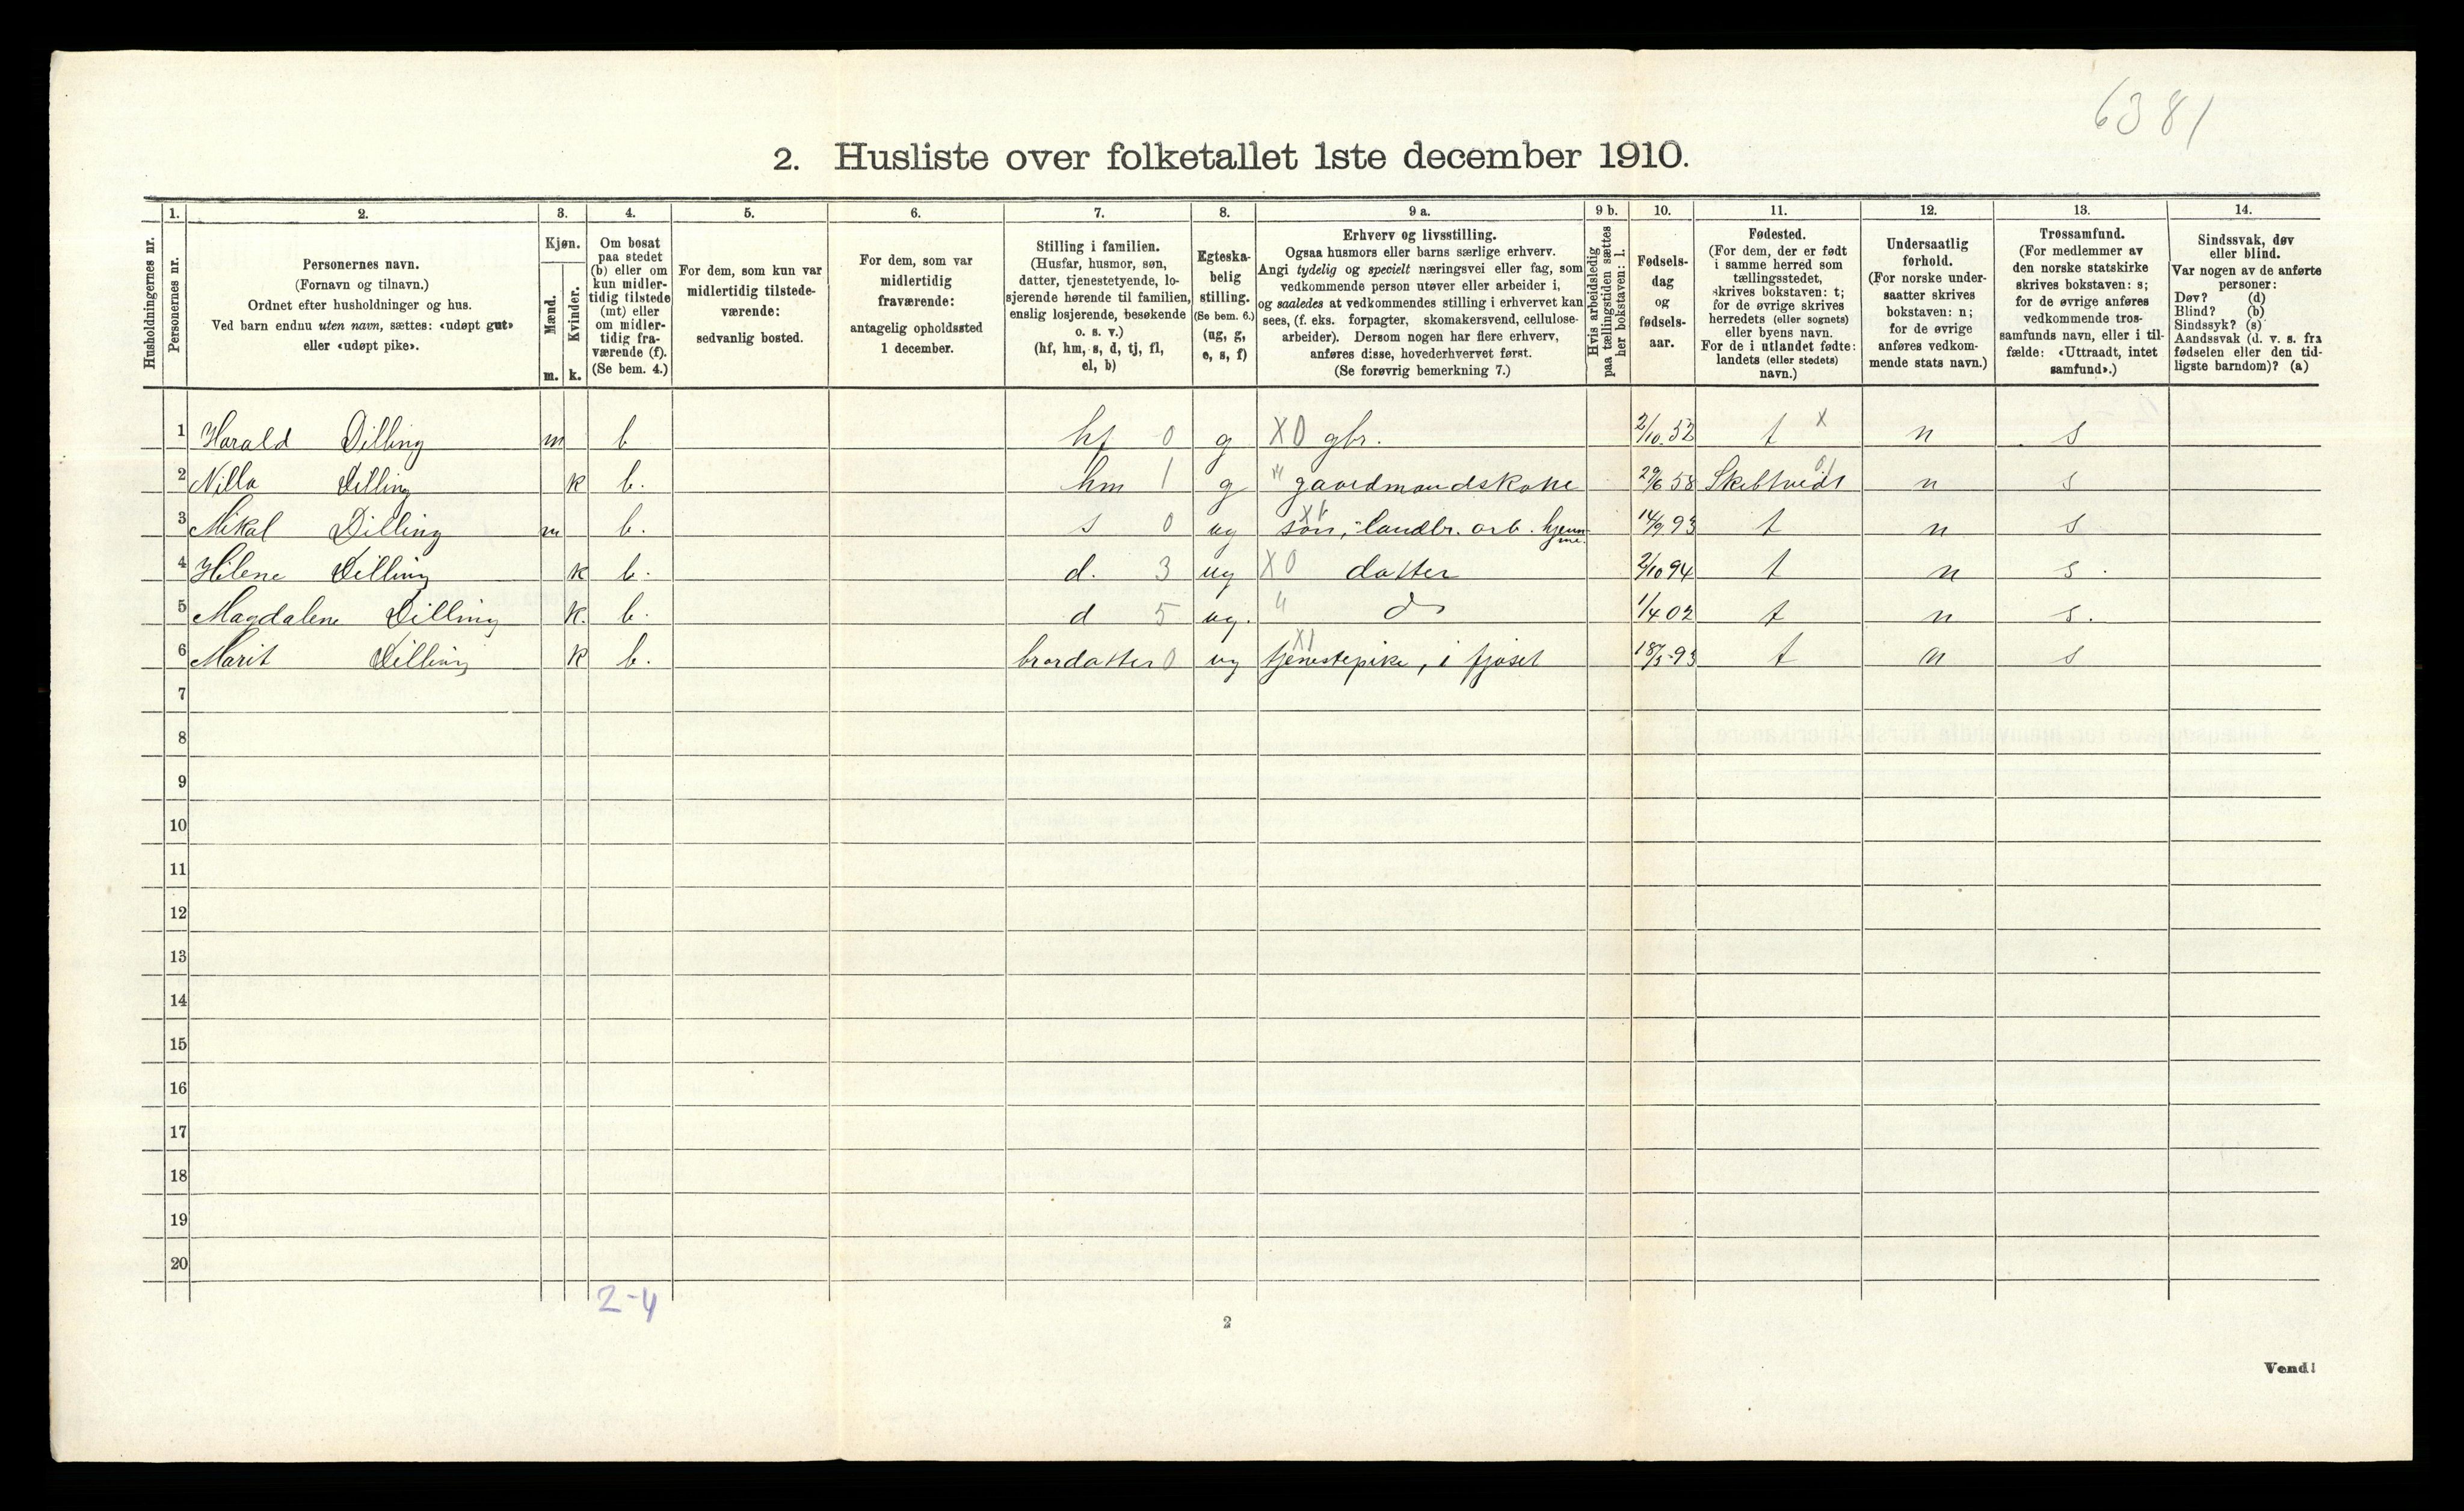 6381
2. Husliste over folketallet 1ste december 1910.
Husholdningernes nr.
1.
Personernes nr.
2.
Personernes navn.
(Fornavn og tilnavn.)
Ordnet efter husholdninger og hus.
Ved barn endnu uten navn, sættes: «udøpt gut»
eller «udøpt pike».
3.
Kjøn.
Mænd.
Kvinder.
m. k.
4.
Om bosat
paa stedet
(b) eller om
kun midler-
tidig tilstede
(mt) eller
om midler-
tidig fra-
værende (f).
(Se bem. 4.)
5.
For dem, som kun var
midlertidig tilstede-
værende:
sedvanlig bosted.
6.
For dem, som var
midlertidig
fraværende:
antagelig opholdssted
1 december.
7.
Stilling i familien.
(Husfar, husmor, søn,
datter, tjenestetyende, lo-
sjerende hørende til familien,
enslig losjerende, besøkende
o. s. v.)
(hf, hm, s, d, tj, fl,
el, b)
8.
Egteska-
belig
stilling.
(Se bem. 6.)
(ug, g,
e, s, f)
9 a.
Erhverv og livsstilling.
Ogsaa husmors eller barns særlige erhverv.
Angi tydelig og specielt næringsvei eller fag, som
vedkommende person utøver eller arbeider i,
og saaledes at vedkommendes stilling i erhvervet kan
sees, (f. eks. forpagter, skomakersvend, cellulose-
arbeider). Dersom nogen har flere erhverv,
anføres disse, hovederhvervet først.
(Se forøvrig bemerkning 7.)
9 b.
Hvis arbeidsledig
paa tællingstiden sættes
her bokstaven: l.
10.
Fødsels-
dag
og
fødsels-
aar.
11.
Fødested.
(For dem, der er født
i samme herred som
tællingsstedet,
skrives bokstaven: t;
for de øvrige skrives
herredets (eller sognets)
eller byens navn.
For de i utlandet fødte:
landets (eller stedets)
navn.)
12.
Undersaatlig
forhold.
(For norske under-
saatter skrives
bokstaven: n;
for de øvrige
anføres vedkom-
mende stats navn.)
13.
Trossamfund.
(For medlemmer av
den norske statskirke
skrives bokstaven: s;
for de øvrige anføres
vedkommende tros-
samfunds navn, eller i til-
fælde: «Uttraadt, intet
samfund».)
14.
Sindssvak, døv
eller blind.
Var nogen av de anførte
personer:
Døv? (d)
Blind? (b)
Sindssyk? (s)
Aandssvak (d. v. s. fra
fødselen eller den tid-
ligste barndom)? (a)
1 Harald Dilling m b hf 0 g X0 gbr. 2/10.52 t x n s
2 Nilla Dilling k b. hm 1 g " gaardmandskone 29/6 58 Skibtvedt n s
3 Mikal Dilling m b. s 0 ug søn, landbr. arb. hjem- me. 14/9 93 t n s
4 Hilene Dilling k b. d. 3 ug X0 datter 2/10 94 t n s.
5 Magdalene Dilling k. b. d 5 ug. " do 1/4 02 t n s.
6 Marit Dilling k b. brordatter 0 ug X1 tjenestepike, i fjøset 18/3-93 t n s
7
8
9
10
11
12
13
14
15
16
17
18
19
20
2-4
2
Vend!